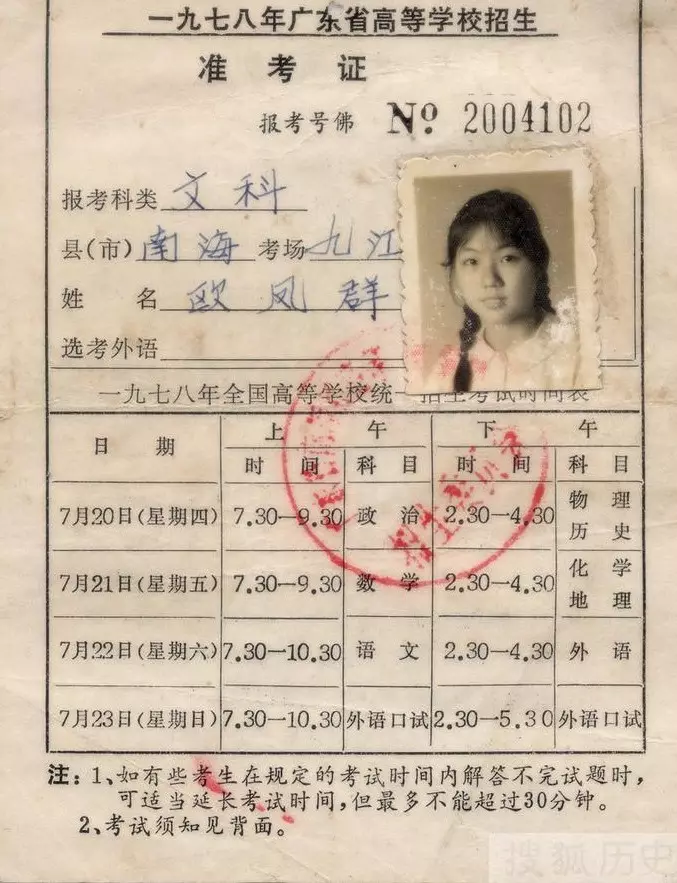 一九七八年广东省高等学校招生
准考证
报考号佛 № 2004102
报考科类 文科
县(市) 南海 考场 九江
姓 名 欧凤群
选考外语
一九七八年全国高等学校统一招生考试时间表
日 期 上 午 下 午
时 间 科 目 时 间 科 目
7月20日(星期四) 7.30—9.30 政 治 2.30—4.30 物 理
历 史
7月21日(星期五) 7.30—9.30 数 学 2.30—4.30 化 学
地 理
7月22日(星期六) 7.30—10.30 语 文 2.30—4.30 外 语
7月23日(星期日) 7.30—10.30 外语口试 2.30—5.30 外语口试
注：1、如有些考生在规定的考试时间内解答不完试题时，
可适当延长考试时间，但最多不能超过30分钟。
2、考试须知见背面。
搜狐历史